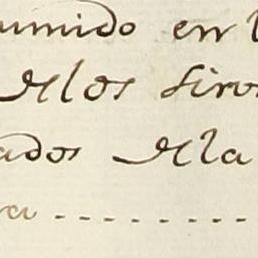 umido en l
delos siro
ados dela
a - - - - - - - - -